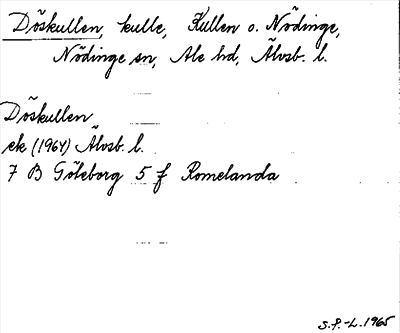 Döskullen, kulle, Kullen o. Nödinge,
Nödinge sn, Ale hd, Älvsb. l.
Döskullen
ek (1964) Älvsb. l.
7 B Göteborg 5 f Romelanda
S.P.-L. 1965